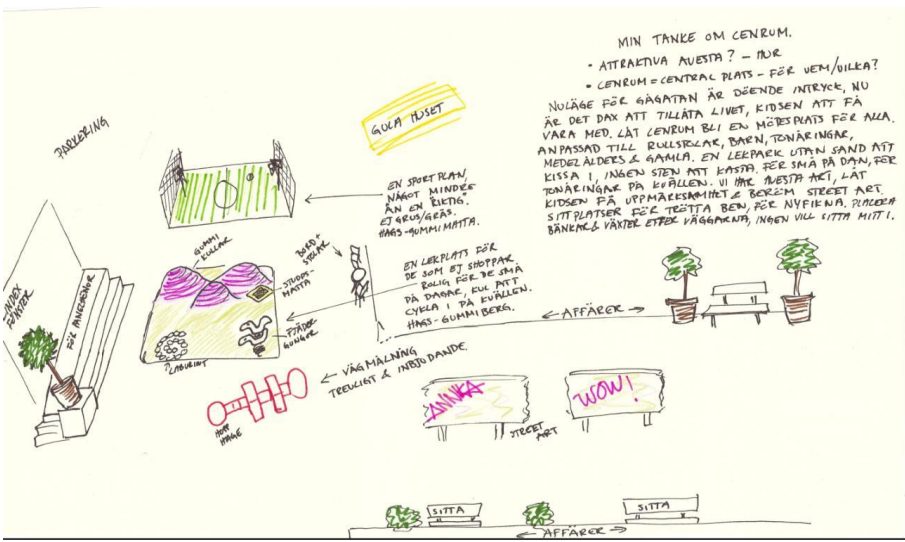 MIN TANKE OM CENRUM.
• ATTRAKTIVA AVESTA? – HUR
• CENRUM = CENTRAL PLATS – FÖR VEM/VILKA?
NULÄGE FÖR GÅGATAN ÄR DÖENDE INTRYCK, NU
ÄR DET DAX ATT TILLÅTA LIVET, KIDSEN ATT FÅ
VARA MED. LÅT CENRUM BLI EN MÖTESPLATS FÖR ALLA.
ANPASSAD TILL RULLSTOLAR, BARN, TONÅRINGAR,
MEDELÅLDERS & GAMLA. EN LEKPARK UTAN SAND ATT
KISSA I, INGEN STEN ATT KASTA. FÖR SMÅ PÅ DAN, FÖR
TONÅRINGAR PÅ KVÄLLEN. VI HAR AVESTA ART, LÅT
KIDSEN FÅ UPPMÄRKSAMHET & BERÖM STREET ART.
SITTPLATSER FÖR TRÖTTA BEN, FÖR NYFIKNA. PLACERA
BÄNKAR & VÄXTER EFTER VÄGGARNA, INGEN VILL SITTA MITT I.
PARKERING
GULA HUSET
EN SPORTPLAN,
NÅGOT MINDRE
ÄN EN "RIKTIG".
EJ GRUS/GRÄS.
HAGS-GUMMIMATTA.
GUMMI
KULLAR
BORD +
STOLAR
STUDS-
MATTA
EN LEKPLATS FÖR
DE SOM EJ SHOPPAR
ROLIG FÖR DE SMÅ
PÅ DAGAR, KUL ATT
CYKLA I PÅ KVÄLLEN.
HAGS-GUMMIBERG.
FJÄDER-
GUNGOR
LABYRINT
INDEX
FÖNSTER
FÖR MÄNNISKOR
← AFFÄRER →
VÄGMÅLNING
TREVLIGT & INBJUDANDE.
HOPP
HAGE
ANNIKA
WOW!
STREET
ART
SITTA
SITTA
← AFFÄRER →